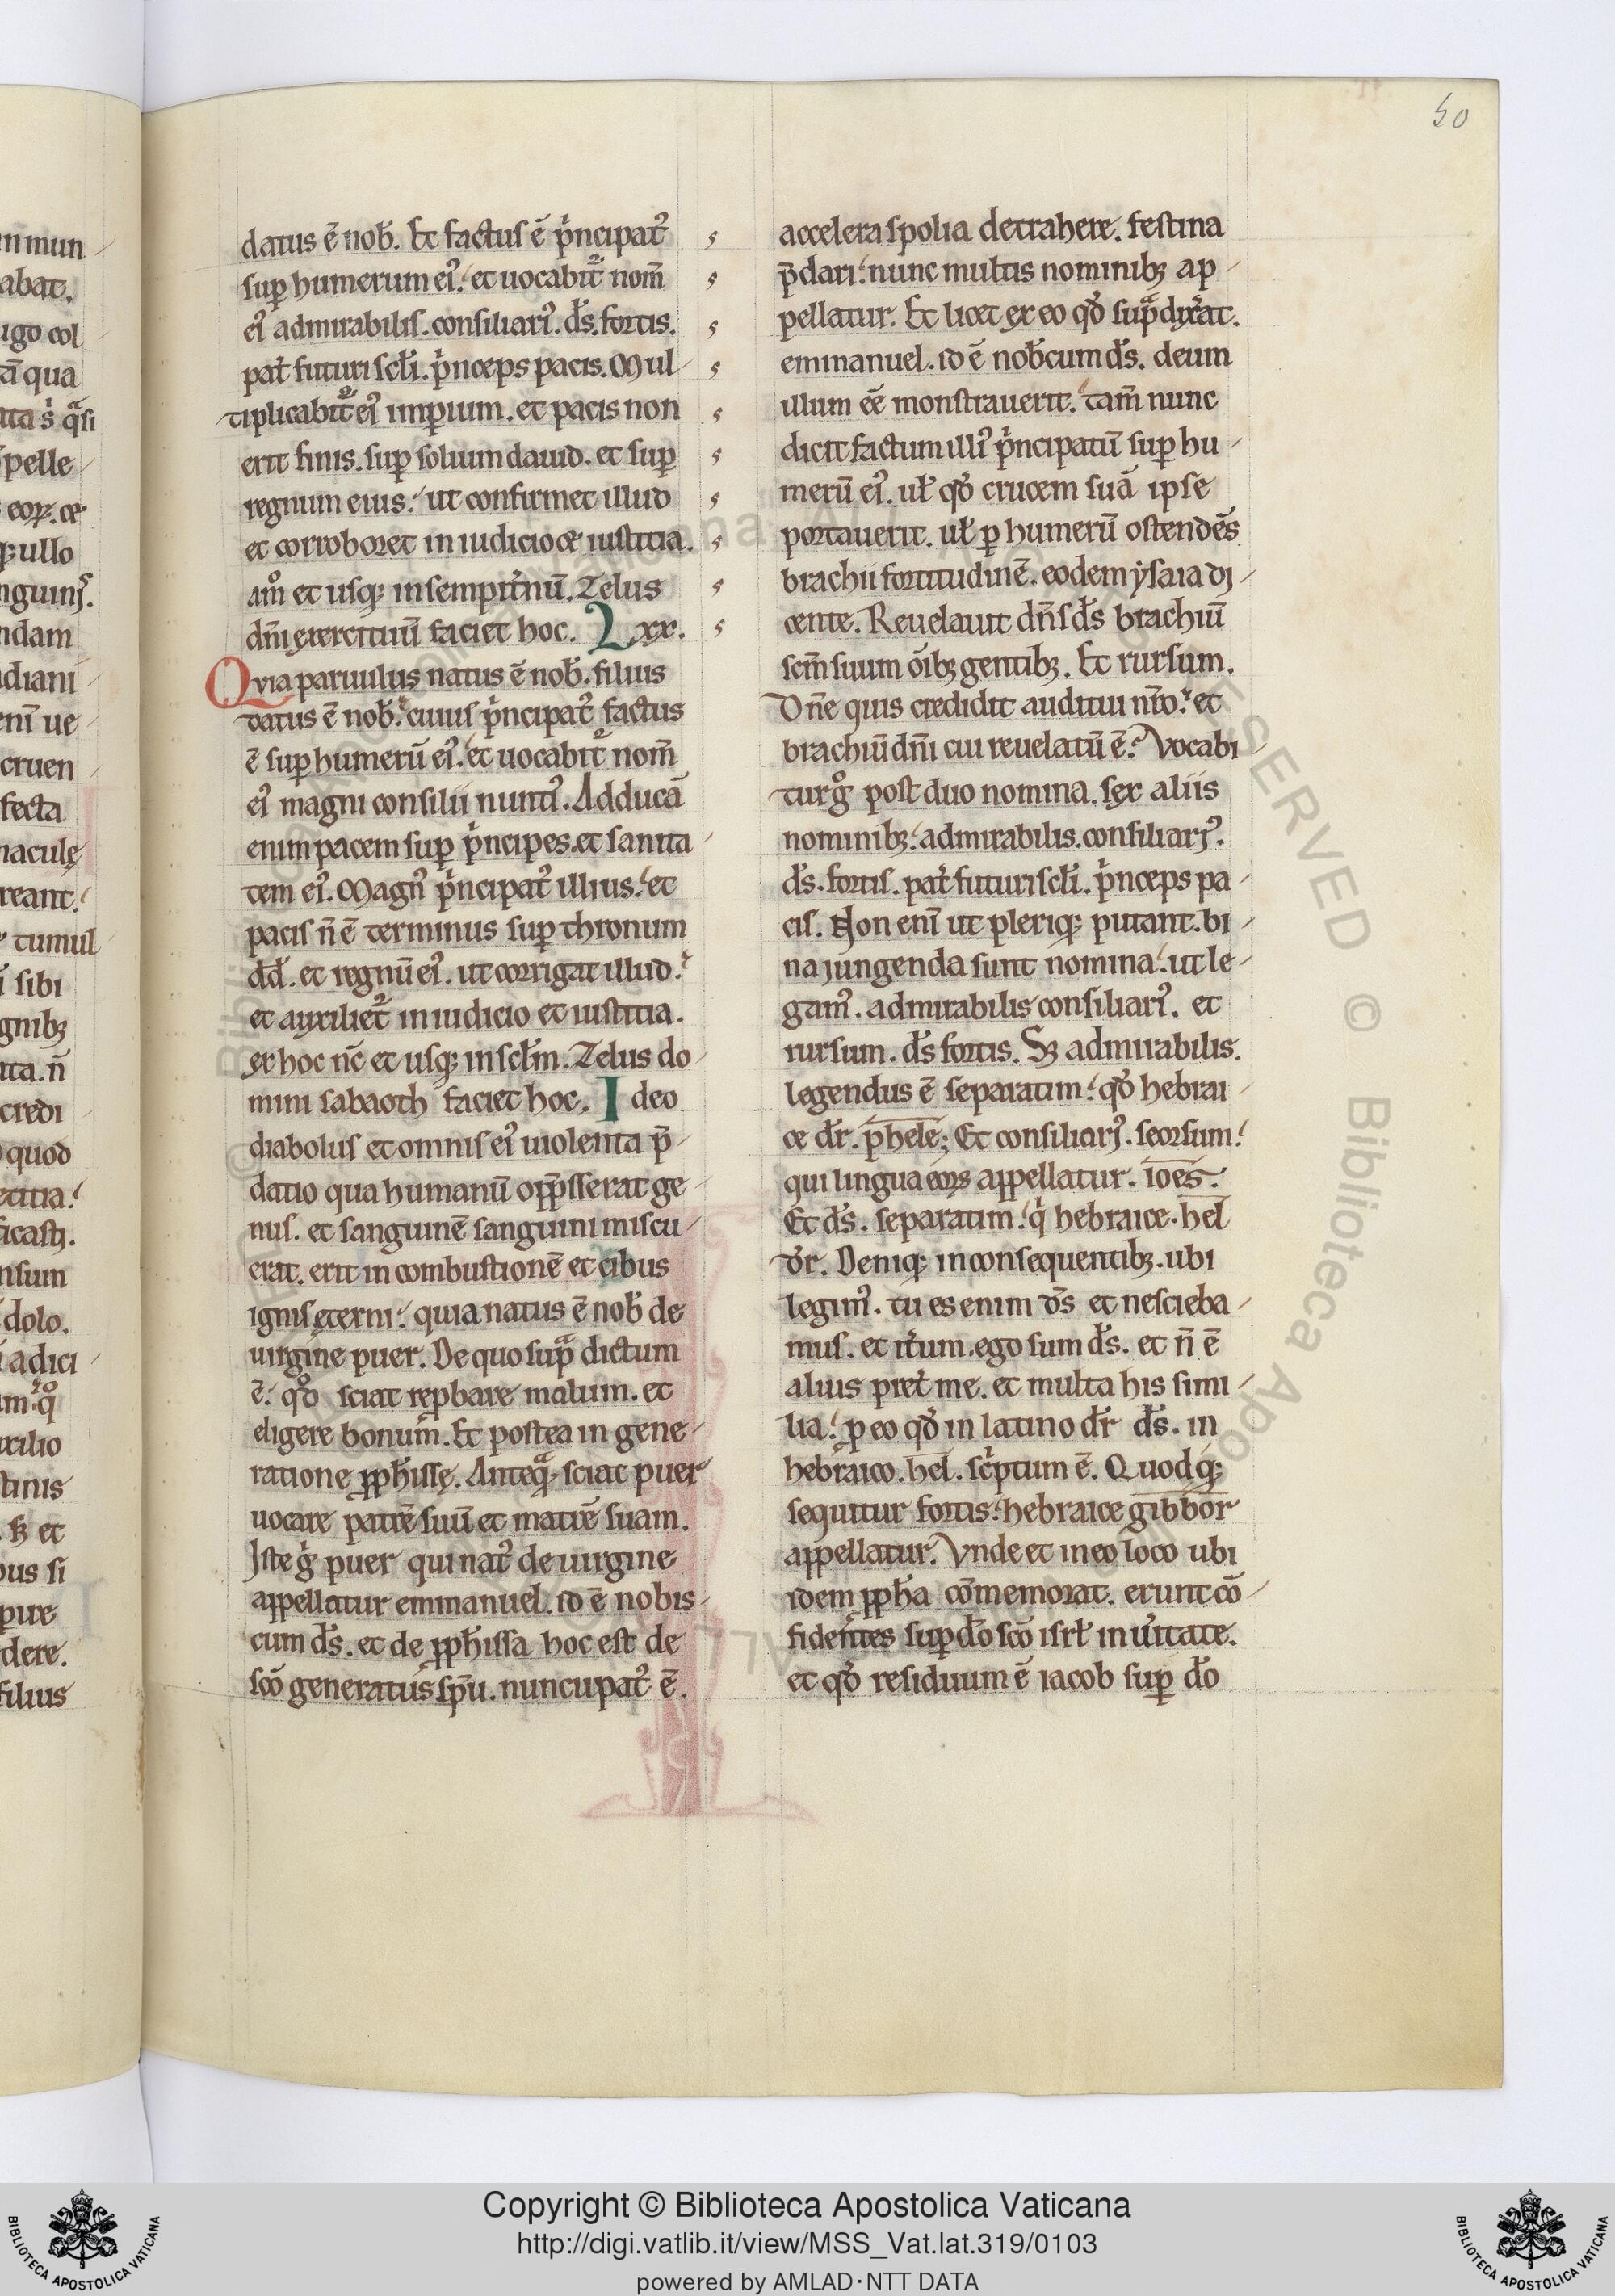 50
datus ē nob̄. Et factus ē pͥncipatꝰ
suꝑ humerum eiꝰ. et uocabit᷑ nom̄
eiꝰ admirabilis. consiliariꝰ. d̄s. fortis.
pat̄ futuri scłi. pͥnceps pacis. Mul-
tiplicabit᷑ eiꝰ imꝑium. et pacis non
erit finis. suꝑ solium dauid. et suꝑ
regnum eius. ut confirmet illud
et corroboret in iudicio et iustitia.
amͦ et usq; in sempit̄nū. Zelus
dn̄i exercituū faciet hoc. Lxx.
Qvia paruulus natus ē nob̄. filius
datus ē nob̄. cuius pͥncipatꝰ factus
ē suꝑ humerū eiꝰ. et uocabit᷑ nom̄
eiꝰ magni consilii nuntiꝰ. Adducā
enim pacem suꝑ pͥncipes. et sanita-
tem eiꝰ. Magnꝰ pͥncipatꝰ illius. et
pacis n̄ ē terminus suꝑ thronum
dd̄. et regnū eiꝰ. ut corrigat illud.
et auxiliet᷑ in iudicio et iustitia.
ex hoc nc̄ et usq; in scłm. Zelus do-
mini sabaoth faciet hoc. Ideo
diabolus et omnis eiꝰ uiolenta p̄-
datio qua humanū opp̄sserat ge-
nus. et sanguinē sanguini miscu-
erat. erit in combustionē et cibus
ignis ęterni. quia natus ē nob̄ de
uirgine puer. De quo supᷓ dictum
ē. qd̄ sciat reꝓbare malum. et
eligere bonum. Et postea in gene-
ratione ꝓph̄issę. Anteqᷓ sciat puer
uocare patrē suū et matrē suam.
Iste gͥ puer qui natꝰ de uirgine
appellatur emmanuel. id ē nobis-
cum d̄s. et de ꝓph̄issa hoc est de
sc̄o generatus sp̄u. nuncupatꝰ ē.
accelera spolia detrahere. festina
p̄dari. nunc multis nominibꝫ ap-
pellatur. Et licet ex eo qd̄ supᷓ dixͥat.
emmanuel. id ē nob̄cum d̄s. deum
illum eē monstrauerit. tam̄ nunc
dicit factum illiꝰ pͥncipatū suꝑ hu-
merū eiꝰ. uł qd̄ crucem suā ipse
portauerit. uł ꝑ humerū ostendēs
brachii fortitudinē. eodem ysaia di-
cente. Reuelauit dn̄s d̄s brachiū
scm̄ suum om̄ibꝫ gentibꝫ. Et rursum.
Dn̄e quis credidit auditui nr̄o. et
brachiū dn̄i cui reuelatū ē. Vocabi-
tur gͦ post duo nomina. sex aliis
nominibꝫ. admirabilis. consiliariꝰ.
d̄s. fortis. pat̄ futuri scłi. pͥnceps pa-
cis. Non enī ut pleriq; putant. bi-
na jungenda sunt nomina. ut le-
gamꝰ. admirabilis consiliariꝰ. et
rursum. d̄s fortis. Sꝫ admirabilis.
legendus ē separatim. qd̄ hebrai-
ce dr̄. phele; Et consiliariꝰ. seorsum.
qui lingua eoꝝ appellatur. ioes.
Et d̄s. separatim. qͥ hebraice. hel
dr̄. Deniq; in consequentibꝫ. ubi
legimꝰ. tu es enim d̄s et nescieba-
mus. et it̄um. ego sum d̄s. et n̄ ē
alius pret̄ me. et multa his simi-
lia. ꝑ eo qd̄ in latino dr̄ d̄s. in
hebraico. hel. scͥptum ē. Quodq;
sequitur fortis. hebraice gibbor
appellatur. Vnde et in eo loco ubi
idem ꝓph̄a cōmemorat. erunt cō-
fidentes suꝑ d̄o sc̄o isrł in uͥitate.
et qd̄ residuum ē iacob suꝑ d̄o
Copyright © Biblioteca Apostolica Vaticana
http://digi.vatlib.it/view/MSS_Vat.lat.319/0103
powered by AMLAD·NTT DATA
BIBLIOTECA APOSTOLICA VATICANA
BIBLIOTECA APOSTOLICA VATICANA